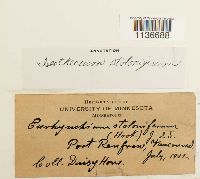 1136688
ANNOTATION
Isothecium stoloniferum
HERBARIUM OF
UNIVERSITY OF MINNESOTA
MINNEAPOLIS
Eurhynchium stoloniferum
(Hook) J. & S.
Port Renfrew, Vancouver
July, 1901.
Coll. Daisy Hone.